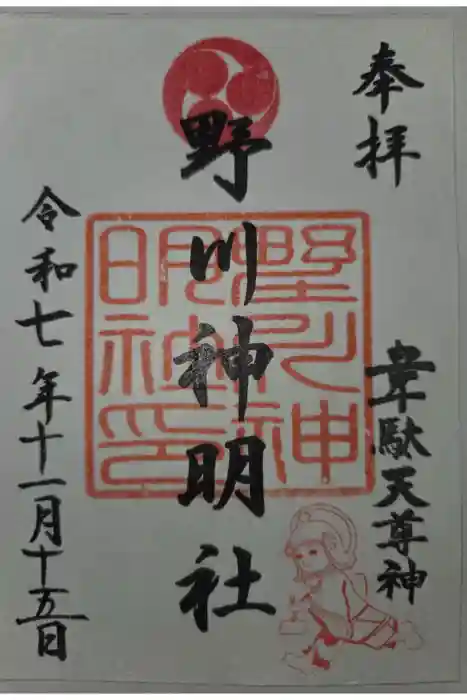 奉拝
韋駄天尊神
野川神明社
野川神明社印
令和七年十一月十五日